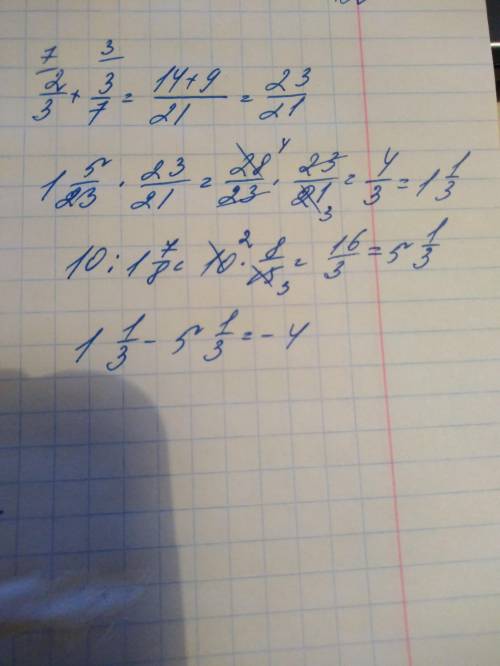 2/3 (7) + 3/7 (3) = (14+9)/21 = 23/21
1 5/23 · 23/21 = 28/23 (4) · 23/21 (3) = 4/3 = 1 1/3
10 : 1 7/8 = 10 (2) · 8/15 (3) = 16/3 = 5 1/3
1 1/3 - 5 1/3 = - 4